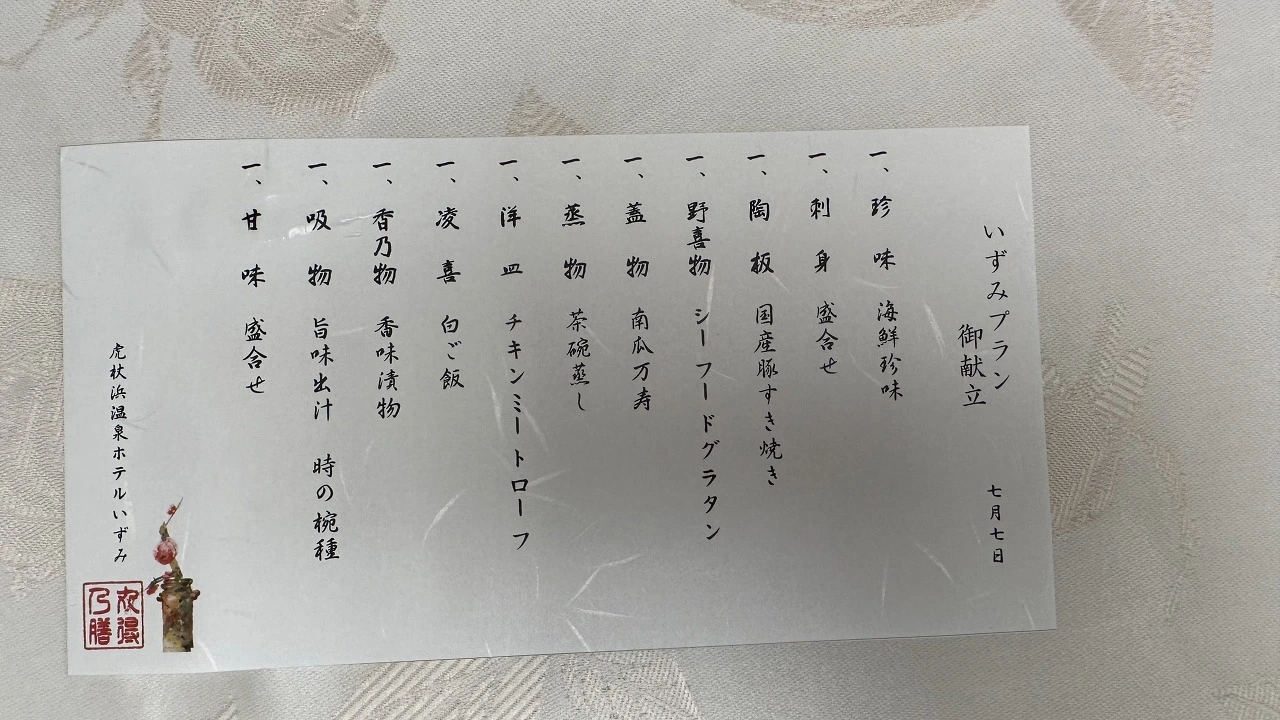 いずみプラン
御献立
七月七日
一、珍味 海鮮珍味
一、刺身 盛合せ
一、陶板 国産豚すき焼き
一、野喜物 シーフードグラタン
一、蓋物 南瓜万寿
一、蒸物 茶碗蒸し
一、洋皿 チキンミートローフ
一、凌喜 白ご飯
一、香乃物 香味漬物
一、吸物 旨味出汁 時の椀種
一、甘味 盛合せ
虎杖浜温泉ホテルいずみ
乃膳